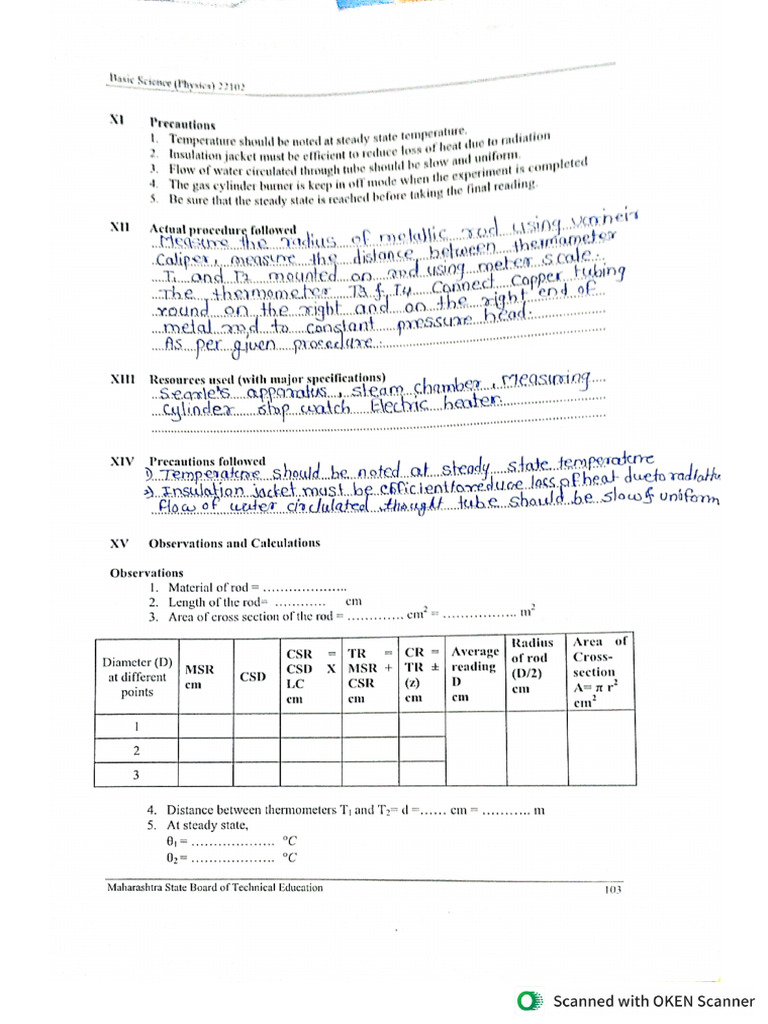 Basic Science (Physics) 22102
XI Precautions
1. Temperature should be noted at steady state temperature.
2. Insulation jacket must be efficient to reduce loss of heat due to radiation
3. Flow of water circulated through tube should be slow and uniform.
4. The gas cylinder burner is keep in off mode when the experiment is completed
5. Be sure that the steady state is reached before taking the final reading.
XII Actual procedure followed
Measure the radius of metallic rod using
Caliper, measure the distance between thermometer
T1 and T2 mounted on and using meter scale.
The thermometer T3 & T4 Connect Copper tubing
round on the right and on the right end of
metal and to constant pressure head.
As per given procedure.
XIII Resources used (with major specifications)
Searle's apparatus, steam chamber, Measuring
Cylinder stop watch Electric heater.
XIV Precautions followed
1) Temperature should be noted at steady state temperature
2) Insulation jacket must be efficient to reduce loss of heat due to
flow of water thought tube should be slow & uniform
XV Observations and Calculations
Observations
1. Material of rod = ....................
2. Length of the rod= ............ cm
3. Area of cross section of the rod = ............. cm² = ................. m²
Diameter (D) at different points MSR cm CSD CSR = CSD X LC cm TR = MSR + CSR cm CR = TR ± (z) cm Average reading D cm Radius of rod (D/2) cm Area of Cross-section A= π r² cm²
1
2
3
4. Distance between thermometers T₁ and T₂= d =...... cm = ........... m
5. At steady state,
θ₁ = ................... °C
θ₂ = ................... °C
Maharashtra State Board of Technical Education 103
Scanned with OKEN Scanner